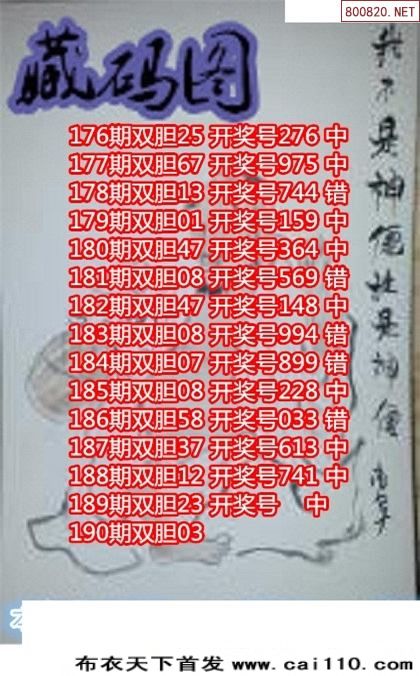 800820.NET
藏码图
176期双胆25 开奖号276 中
177期双胆67 开奖号975 中
178期双胆13 开奖号744 错
179期双胆01 开奖号159 中
180期双胆47 开奖号364 中
181期双胆08 开奖号569 错
182期双胆47 开奖号148 中
183期双胆08 开奖号994 错
184期双胆07 开奖号899 错
185期双胆08 开奖号228 中
186期双胆58 开奖号033 错
187期双胆37 开奖号613 中
188期双胆12 开奖号741 中
189期双胆23 开奖号 中
190期双胆03
我不是神僊就是神僊
布衣天下首发 www.cai110.com